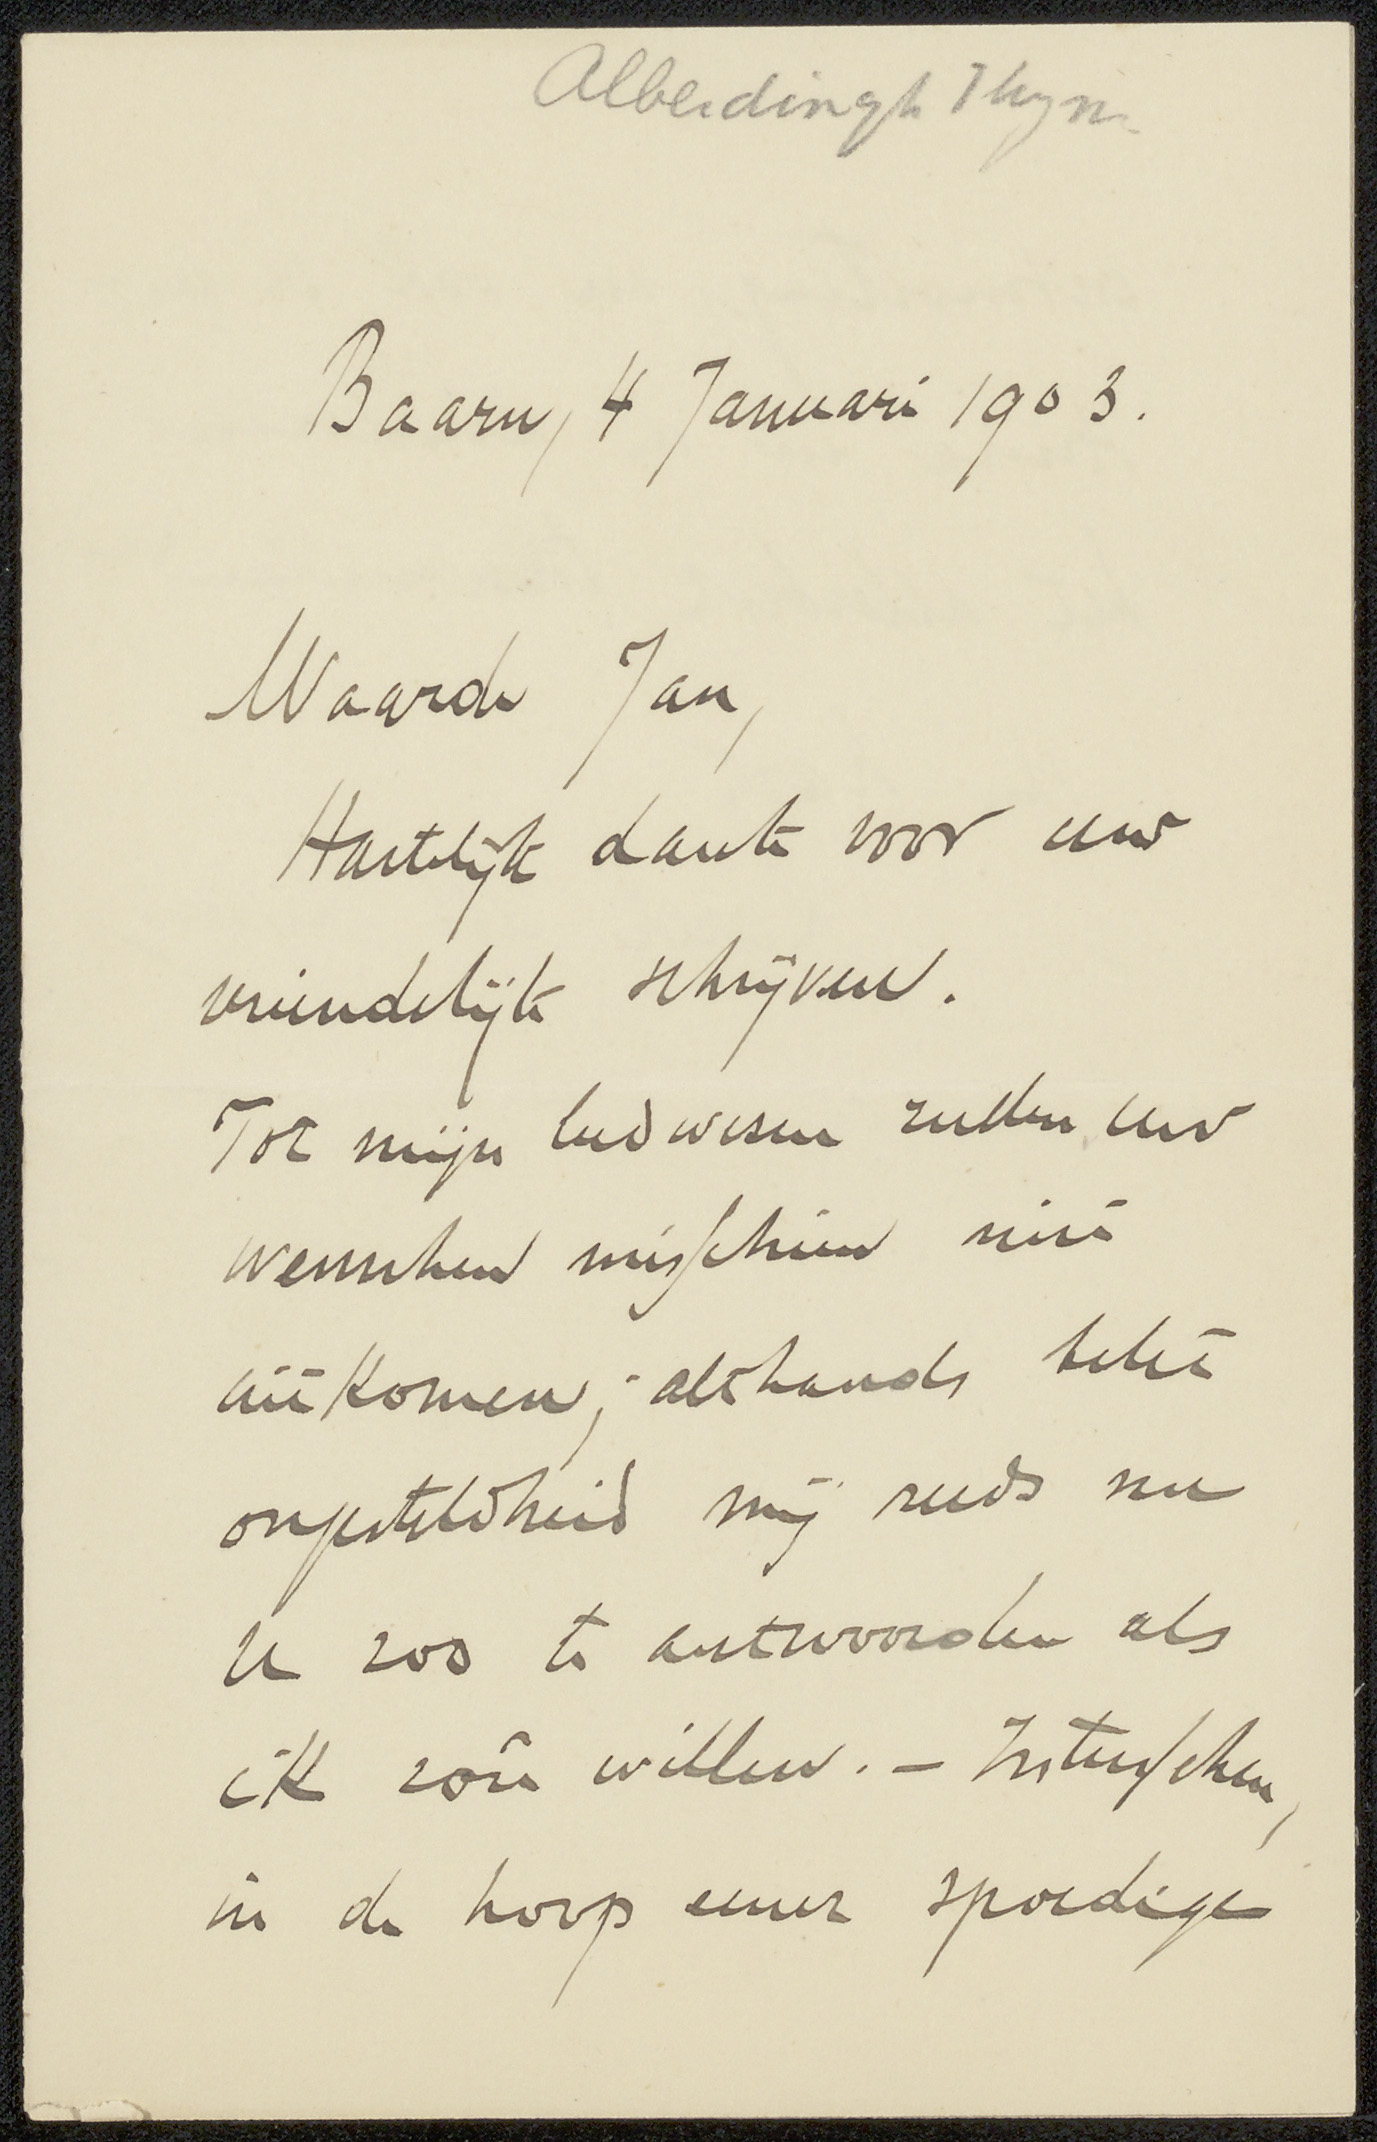 Alberdingk Thym
Baarn, 4 Januari 1903.
Waarde Jan,
Hartelijk dank voor uw
vriendelijk schrijven.
Tot mijn leedwesen zullen uw
wenschen misschien niet
uitkomen; althands belet
ongesteldheid mij reeds nu
U zoo te antwoorden als
ik zoû willen. – Intusschen,
in de hoop eener spoedige